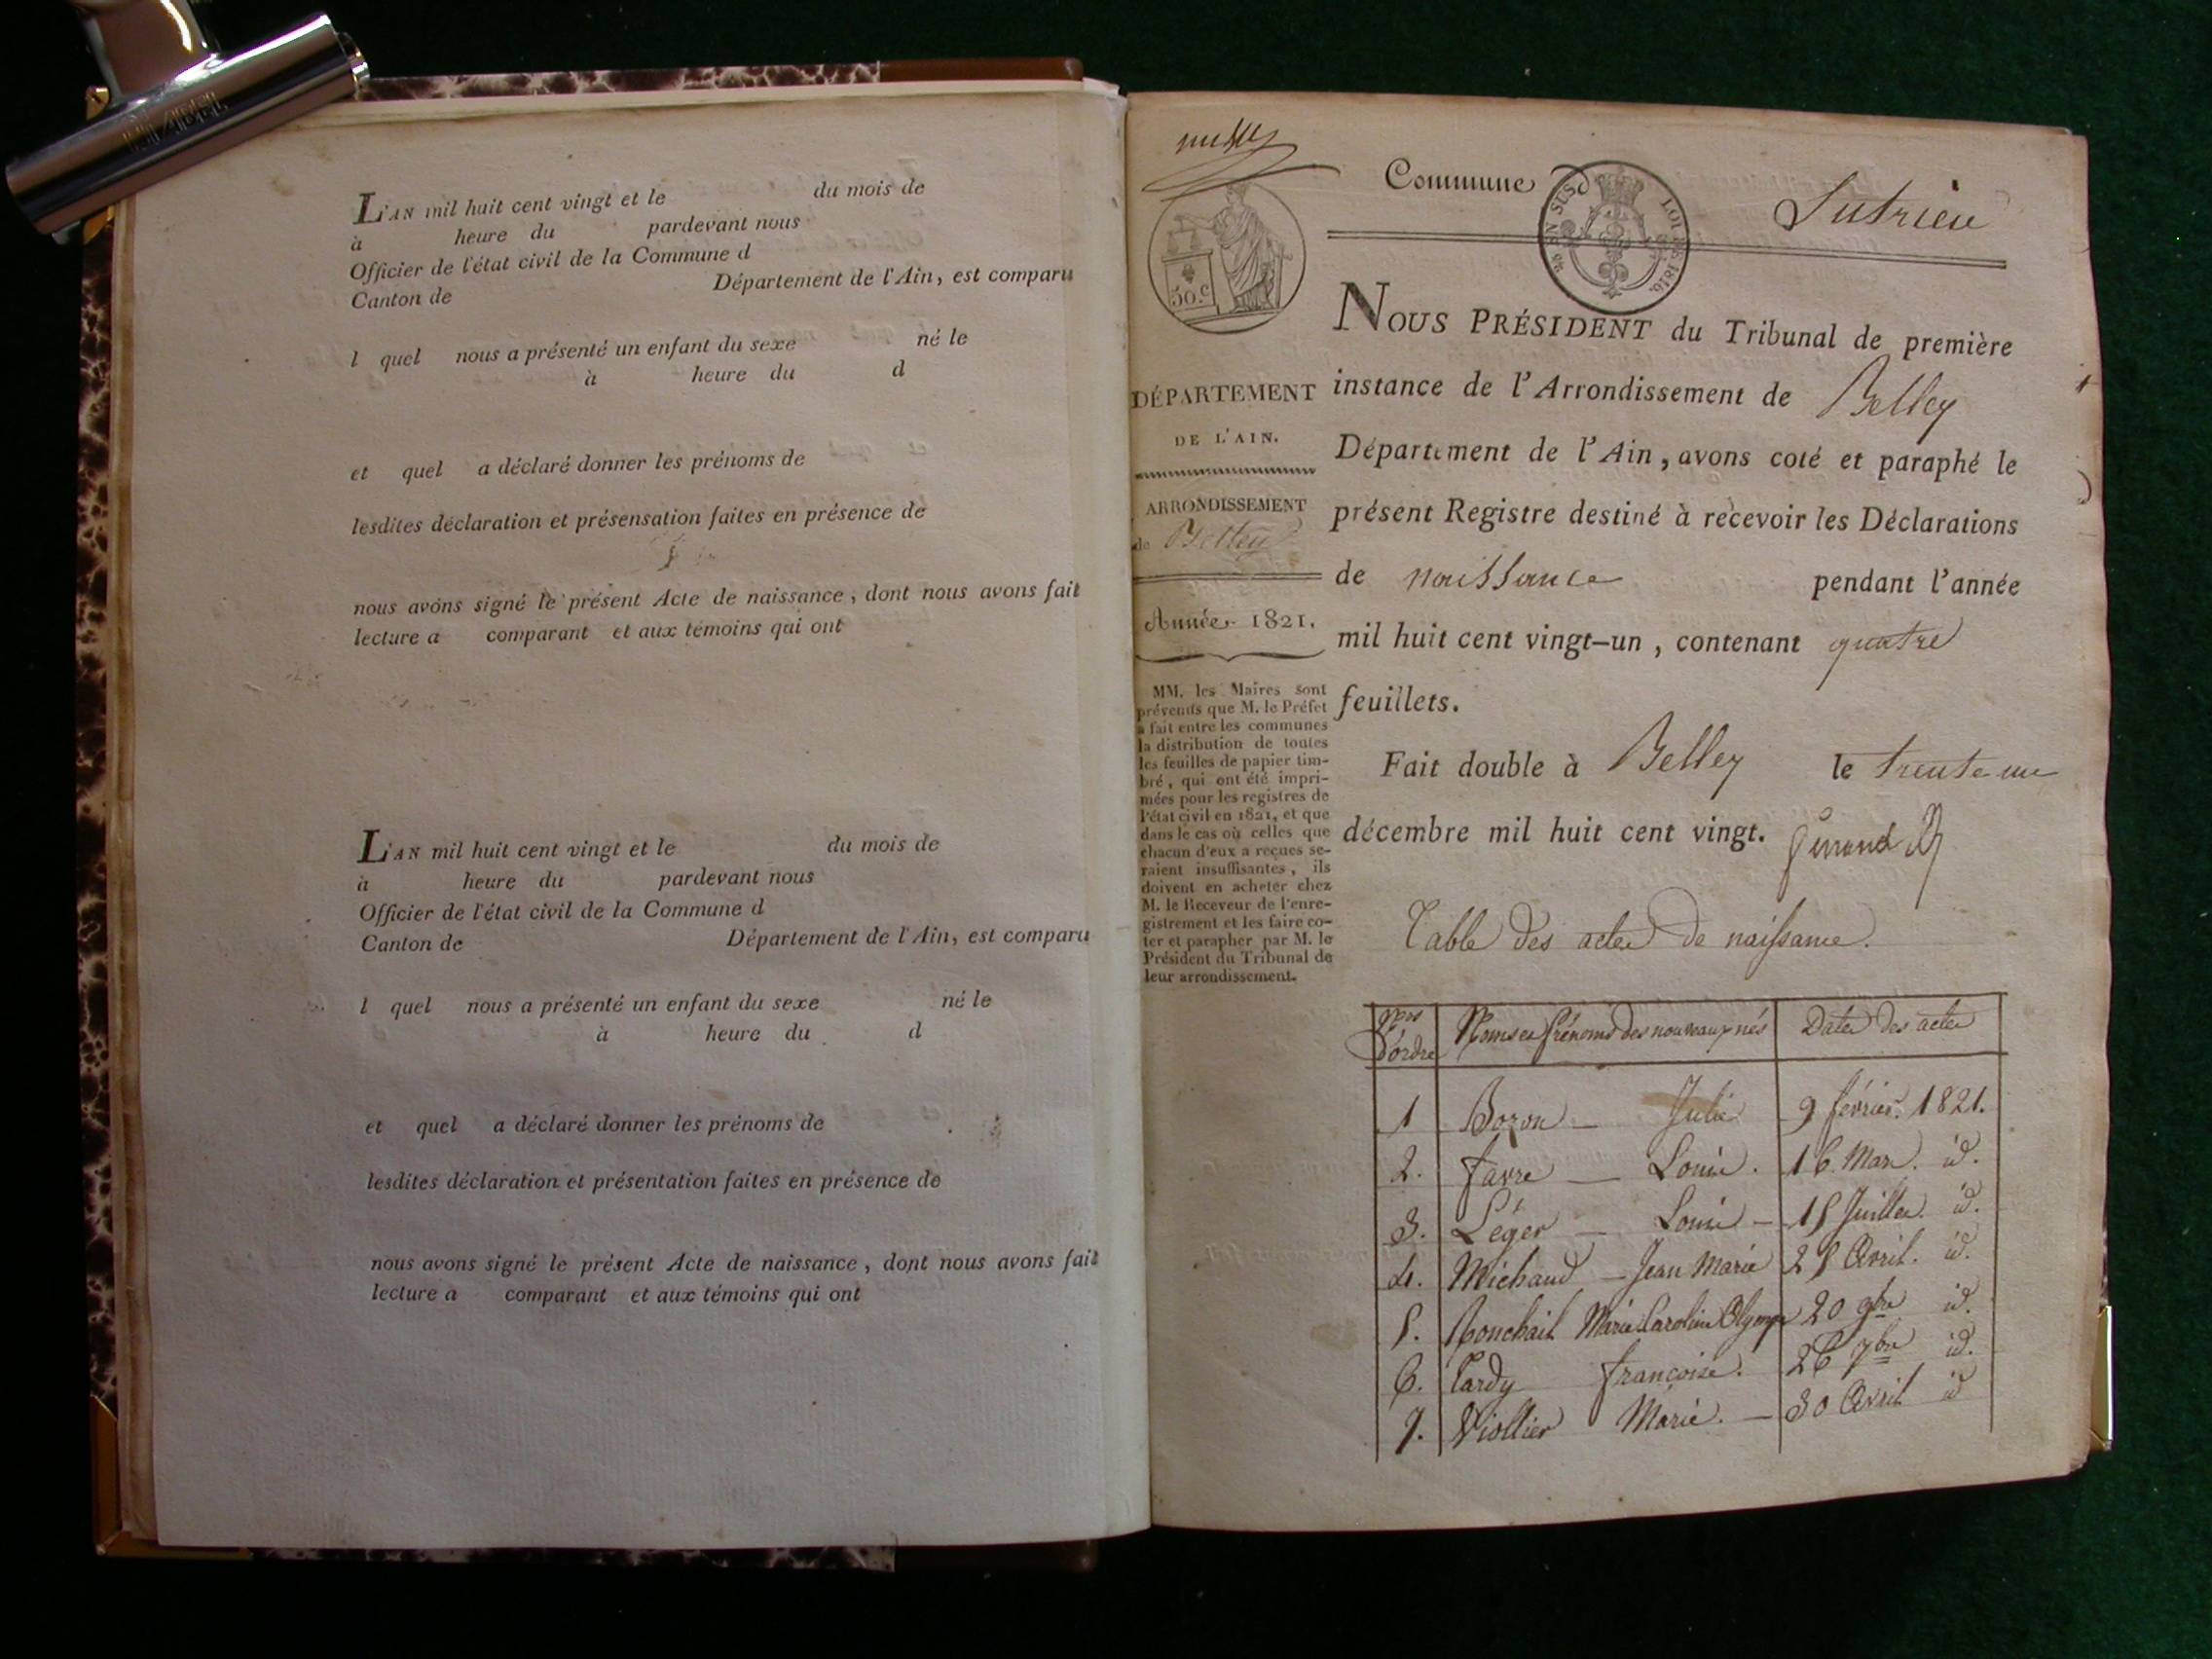 NIABEL
L'AN mil huit cent vingt et le du mois de
à heure du pardevant nous
Officier de l'état civil de la Commune d
Canton de Département de l'Ain, est comparu
l quel nous a présenté un enfant du sexe né le
à heure du d
et quel a déclaré donner les prénoms de
lesdites déclaration et présensation faites en présence de
nous avons signé le présent Acte de naissance, dont nous avons fait
lecture a comparant et aux témoins qui ont
L'AN mil huit cent vingt et le du mois de
à heure du pardevant nous
Officier de l'état civil de la Commune d
Canton de Département de l'Ain, est comparu
l quel nous a présenté un enfant du sexe né le
à heure du d
et quel a déclaré donner les prénoms de
lesdites déclaration et présentation faites en présence de
nous avons signé le présent Acte de naissance, dont nous avons fait
lecture a comparant et aux témoins qui ont
Commune d Sutrieu
EN SUS LOI DE 1816.
50.c
DÉPARTEMENT
DE L'AIN.
ARRONDISSEMENT
de Belley
Année 1821.
MM. les Maires sont
prévenus que M. le Préfet
a fait entre les communes
la distribution de toutes
les feuilles de papier tim-
bré, qui ont été impri-
mées pour les registres de
l'état civil en 1821, et que
dans le cas où celles que
chacun d'eux a reçues se-
raient insuffisantes, ils
doivent en acheter chez
M. le Receveur de l'enre-
gistrement et les faire co-
ter et parapher par M. le
Président du Tribunal de
leur arrondissement.
NOUS PRÉSIDENT du Tribunal de première
instance de l'Arrondissement de Belley
Département de l'Ain, avons coté et paraphé le
présent Registre destiné à recevoir les Déclarations
de naissance pendant l'année
mil huit cent vingt-un, contenant quatre
feuillets.
Fait double à Belley le trente un
décembre mil huit cent vingt.
Table des actes de naissance.
Nos d'ordre Noms et Prénoms des nouveaux nés Dates des actes
1 Boron — Julie 9 février. 1821.
2. favre — Louise. 16. Mars. id.
3. Léger — Louise — 15 Juillet. id.
4. Michaud — Jean Marie 25 Avril. id.
5. Ronchail Marie Caroline Olympe 20 9bre id.
6. Tardy françoise. 26 7bre id.
7. Viollier Marie. — 30 Avril id